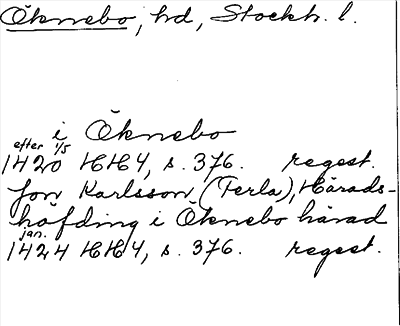 Öknebo, hd, Stockh. l.
i Öknebo
efter 1/5
1420 HH4, s. 376. regest.
Jon Karlsson (Ferla), Härads-
höfding i Öknebo härad
jan.
1424 HH4, s. 376. regest.